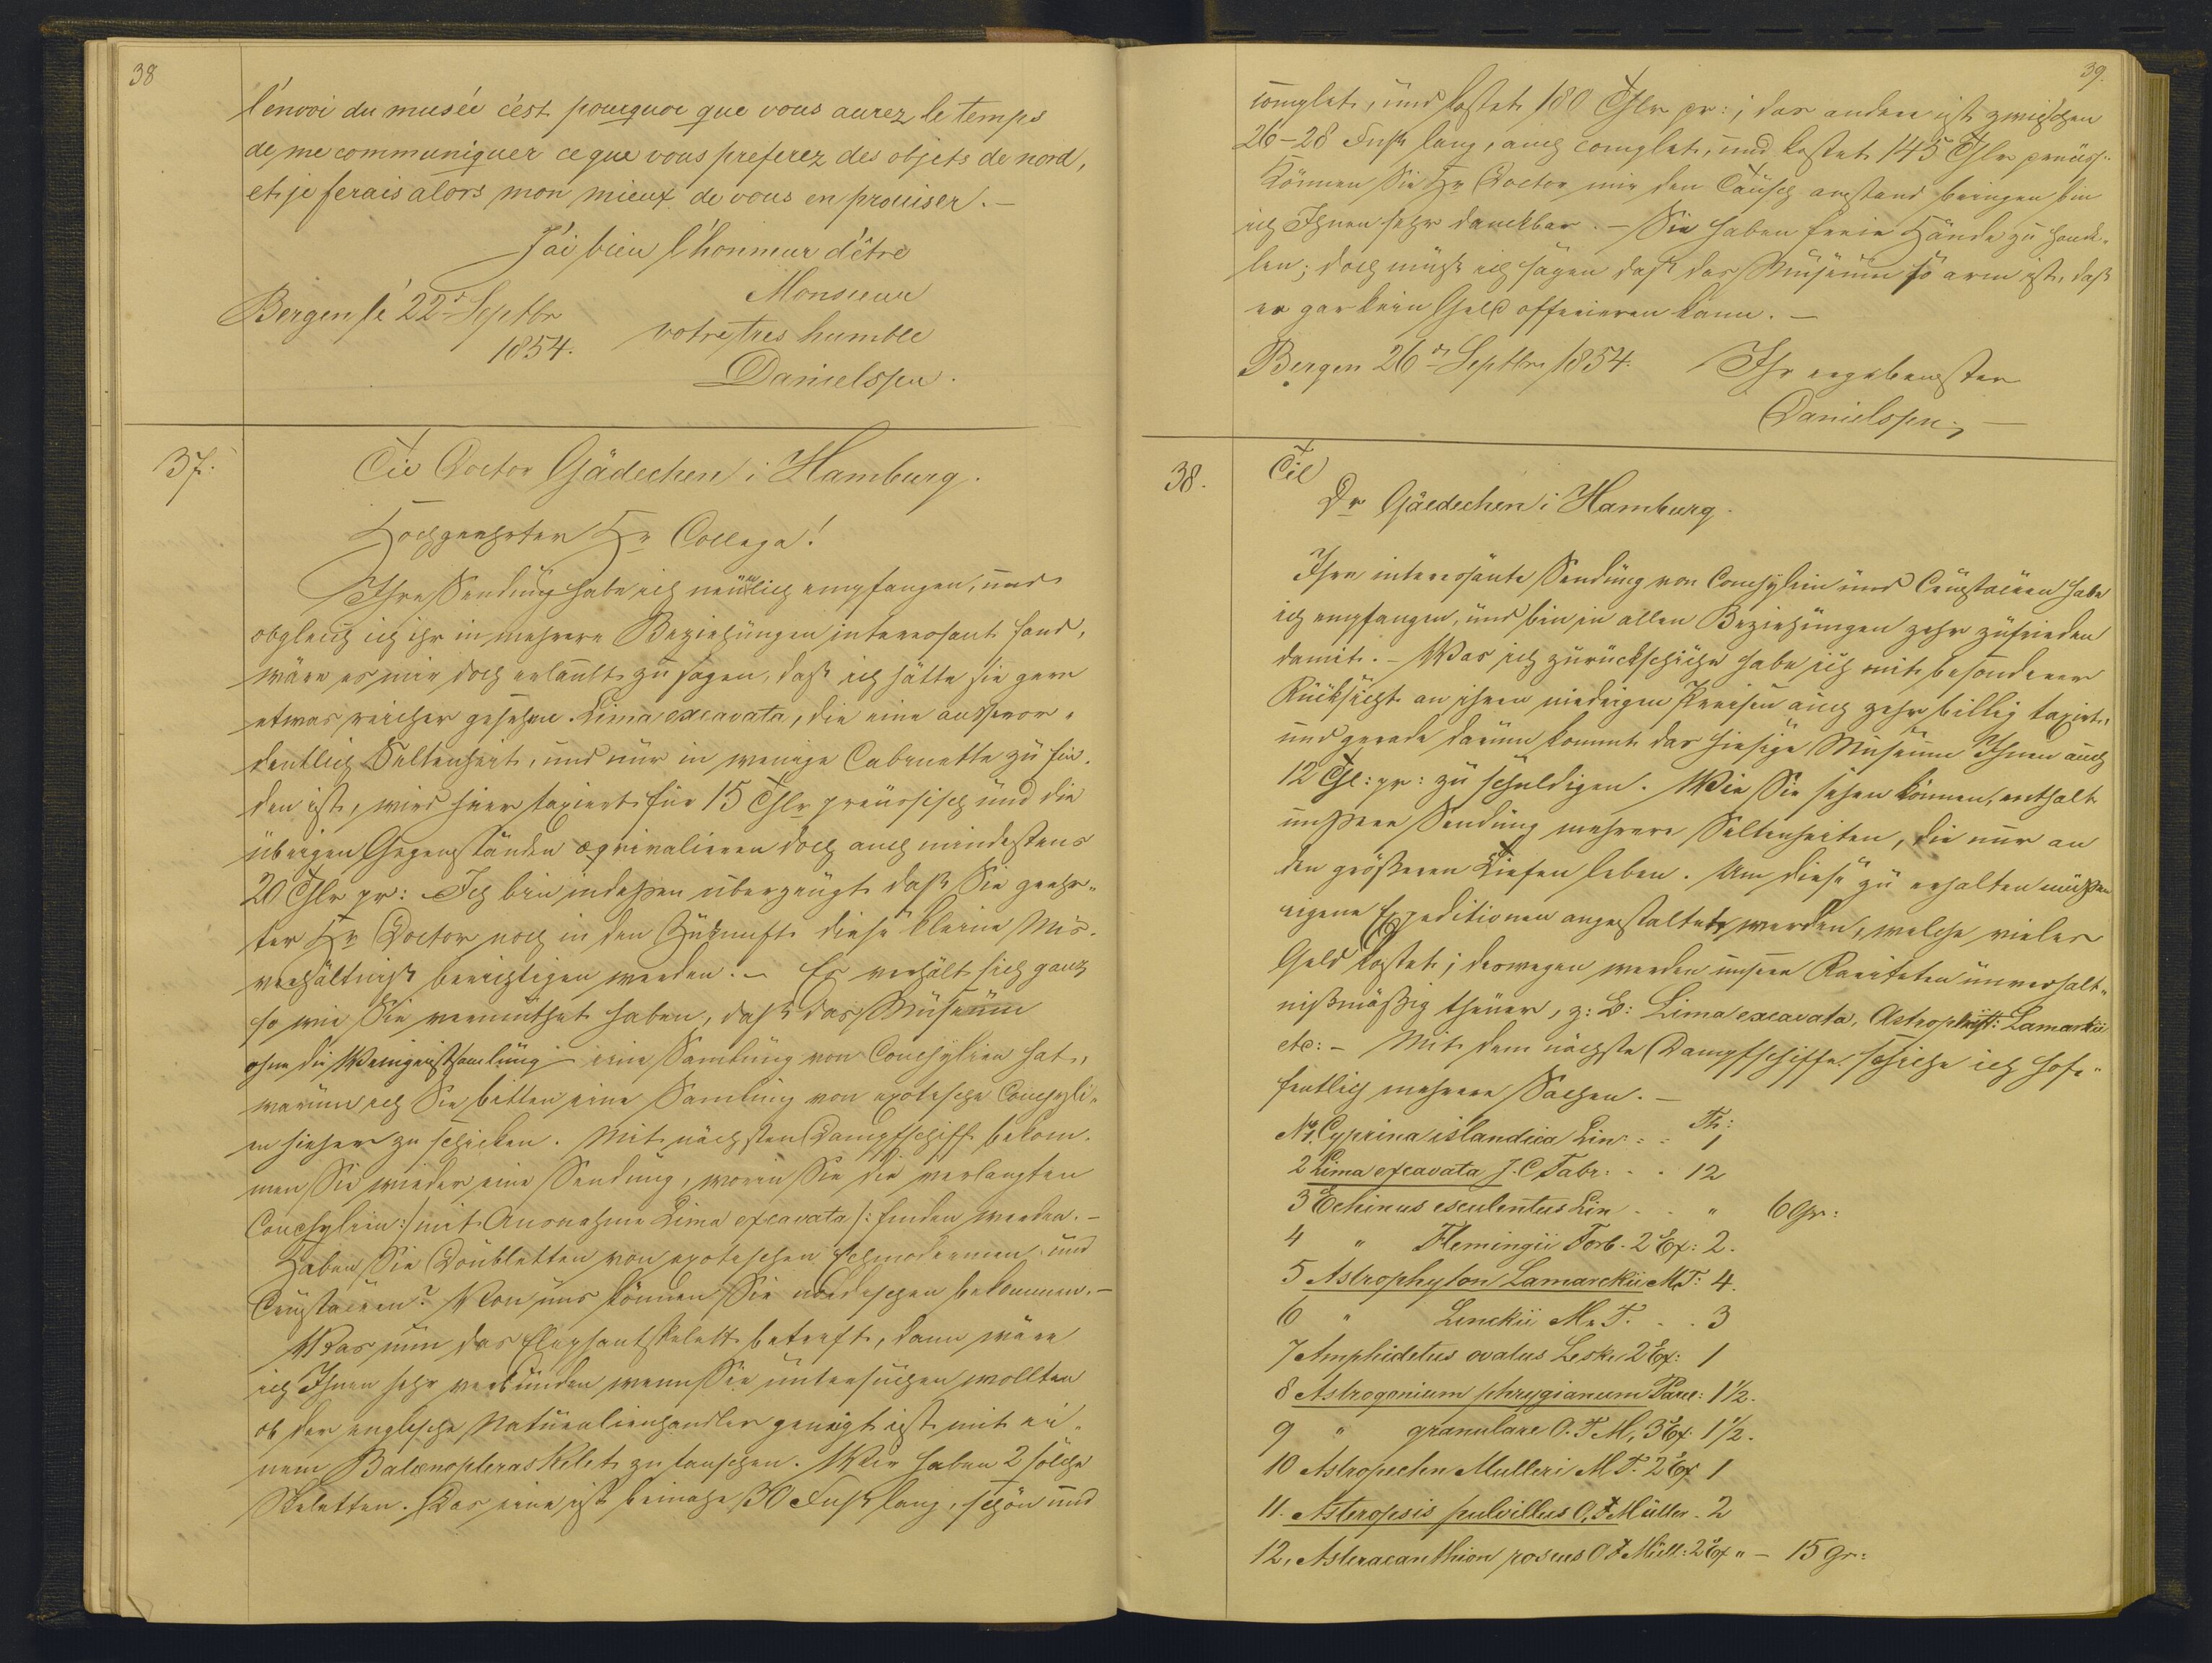 38
l'énvoi du musée c'est pourquoi que vous aurez le temps
de me communiquer ce que vous preferez des objets de nord,
et je ferais alors mon mieux de vous en procuiser. —
J'ai bien l'honneur d'être
Monsieur
Bergen le 22d Septbr
votre tres humble
1854.
Danielssen.
37.
Til Doctor Gädechen i Hamburg.
Hochgeehrter Hr Collega!
Ihre Sendung habe ich neulich empfangen, und
obgleich ich ihr in mehrere Beziehungen interessant fand,
wäre es mir doch erlaubt zu sagen, daß ich hätte sie gern
etwas reicher gesehen. Lima excavata, die eine ausseror-
dentlich Seltenheit, und nur in wenige Cabinette zu fin-
den ist, wird hier taxiert für 15 Thlr preussisch und die
übrigen Gegenständen æqvivalieren doch auch mindestens
20 Thlr pr: Ich bin indessen überzeugt daß Sie geehr-
ter Hr Doctor noch in den Zukunft diese kleine Mis-
verhältniß berichtigen werden. — Es verhält sich ganz
so wie Sie vermuthet haben, daß das Museum
ohne die Weingeistsamlung eine Samlung von Conchylien hat,
warum ich Sie bitten eine Samlung von exotische Conchyli-
en hieher zu schicken. Mit nächsten Dampfschiff bekom-
men Sie wieder eine Sendung, worin Sie die verlangten
Conchylien :/ mit Ausnahme Lima excavata /: finden werden. —
Haben Sie Doubletten von exotischen Echinodermen und
Crustaceen? Von uns können Sie nordischen bekommen. —
Was nun das Elephantskelett betreft, dann wäre
ich Ihnen sehr verbunden wenn Sie untersuchen wollten
ob der englische Naturalienhandler geneigt ist mit ei-
nem Balænopteraskelet zu tauschen. Wir haben 2 solche
Skeletten. Das eine ist beinahe 30 Fuß lang, schön und
39.
complet, und kostet 180 Thlr pr:; das andere ist zwischen
26-28 Fuß lang, auch complet, und kostet 145 Thlr preuss:
Können Sie Hr Doctor mir den Tausch anstand bringen bin
ich Ihnen sehr danckbar. — Sie haben freie Hände zu hand-
len; doch muß ich sagen daß das Museum so arm ist, daß
es gar kein Geld offerieren kann. —
Bergen 26d Septbr 1854.
Ihr ergebenster
Danielssen. —
38.
Til
Dr Gäedechen i Hamburg.
Ihre interessante Sendung von Conchylien und Crustaceen habe
ich empfangen, und bin in allen Beziehungen sehr zufrieden
damit. — Was ich zurückschicke habe ich mit besonderer
Rücksicht an ihren niedrigen Preisen auch sehr billig taxirt,
und gerade darum kommt das hiesige Museum Ihnen auch
12 Thl: pr: zu schuldigen. Wie Sie sehen können, enthalt
unssere Sendung mehrere Seltenheiten, die nur an
den größeren Tiefen leben. Um diese zu erhalten müßen
eigene Expeditionen angestaltet werden, welche vieles
Geld kostet; deswegen werden unsere Rariteten unverhalt-
nißmäßig theuer, z: B: Lima excavata, Astrophyt: Lamarkii
etc: — Mit dem nächste Dampfschiffe schicke ich hof-
fentlich mehrere Sachen. —
Th:
No 1. Cyprina islandica Lin: - - 1
2 Lima excavata J. C. Fabr: - - 12
3 Echinus esculentus Lin - - " 6 Gr:
4 " Flemingii Forb. 2 Ex: 2.
5 Astrophyton Lamarckii M.T: 4.
6 " Linckii M. T. - - 3
7 Amphidetus ovatus Leske 2 Ex: 1
8 Astrogonium phrygianum Parel: 1½.
9 " granulare O. F. M, 3 Ex: 1½.
10 Astropecten Mulleri M T. 2 Ex 1
11. Asteropsis pulvillus O. F Müller. 2
12, Asteracanthion roseus O F Müll: 2 Ex " — 15 gr: